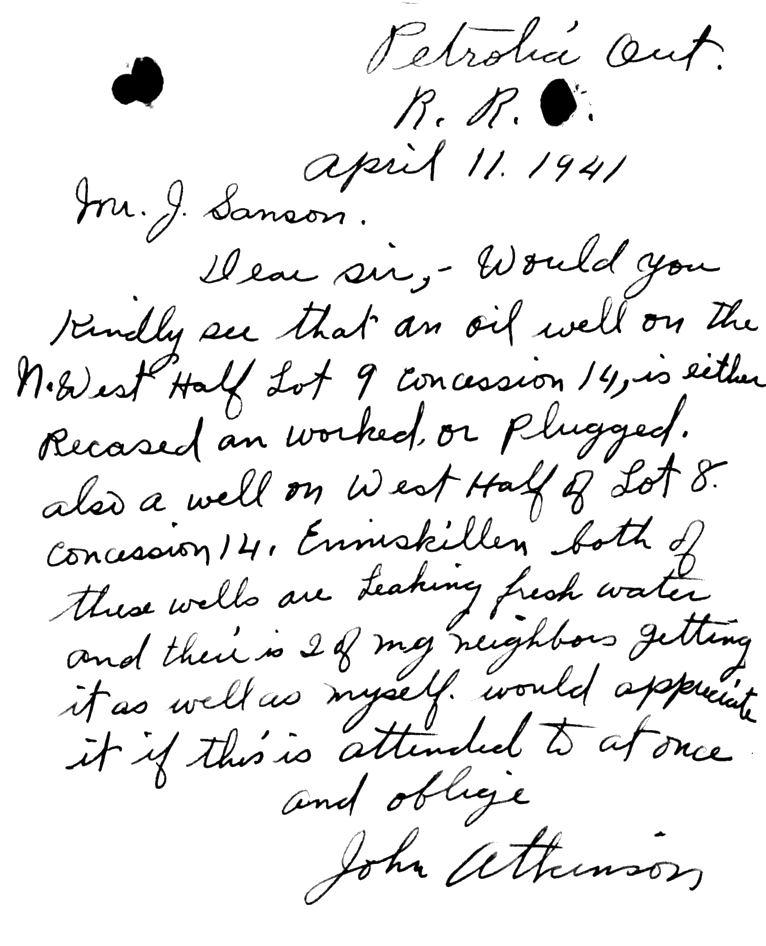 Petrolia Ont.
R. R.
April 11. 1941
Mr. J. Sanson.
Dear sir,- Would you
Kindly see that an oil well on the
N. West Half Lot 9 Concession 14, is either
Recased an worked, or Plugged.
also a well on West Half of Lot 8.
Concession 14. Enniskillen both of
these wells are Leaking fresh water
and their is 2 of my neighbors getting
it as well as myself. would appreciate
it if this is attended to at once
and oblige
John Atkinson